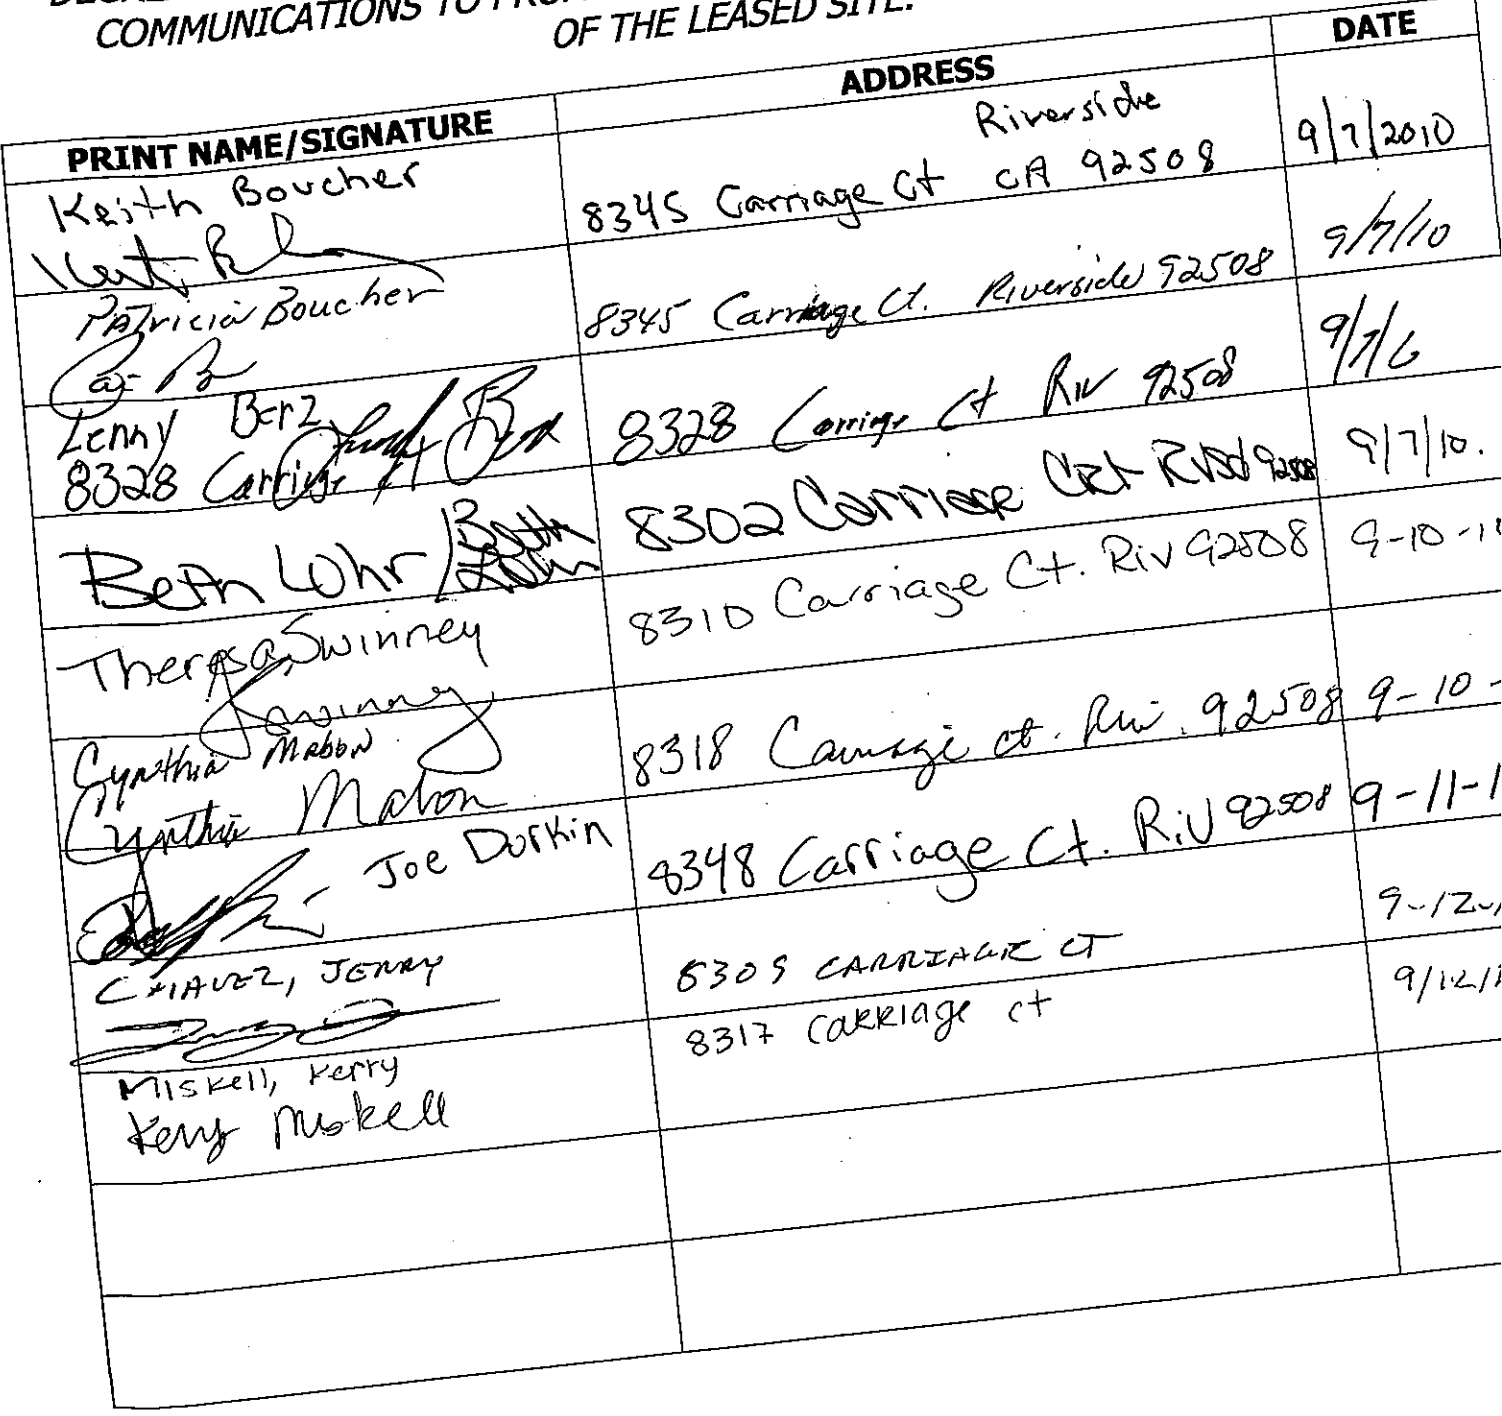 COMMUNICATIONS TO
OF THE LEASED SITE.
PRINT NAME/SIGNATURE ADDRESS DATE
Keith Boucher 8345 Carriage Ct Riverside CA 92508 9/7/2010
Patricia Boucher 8345 Carriage Ct. Riverside 92508 9/7/10
Lenny Berz 8328 Carriage Ct Riv 92508
8328 Carriage Ct
Beth Lohr / Beth Lohr 8302 Carriage Crt 92508 9/7/10.
Theresa Swinney 8310 Carriage Ct. Riv 92508 9-10-1
Swinney
Cynthia Mabon 8318 Carriage ct. Riv. 92508 9-10-
Cynthia Mabon
Joe Durkin 8348 Carriage Ct. Riv 92508 9-11-1
CHAVEZ, JERRY 8309 CARRIAGE CT 9-12-
Miskell, Kerry 8317 Carriage ct 9/12/1
Kerry Miskell